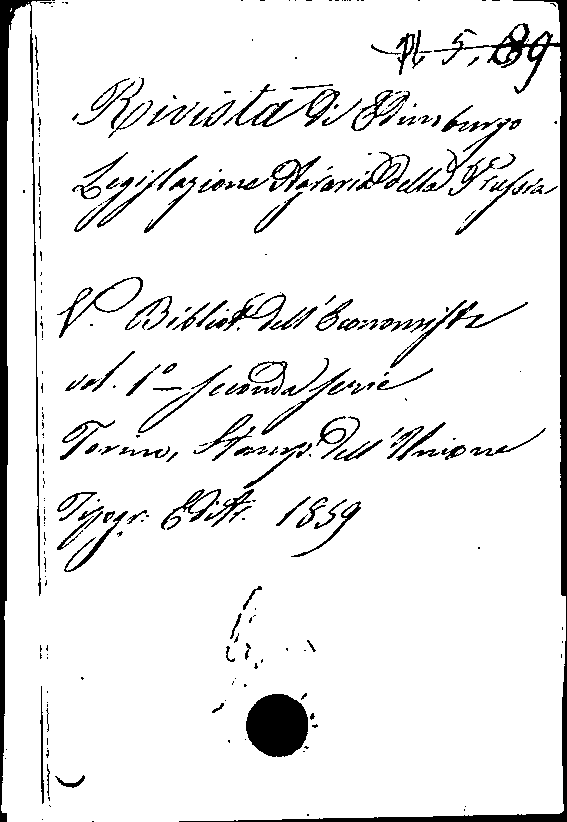 Pl 5, 89
Rivista di Edimburgo
Legislazione Agraria della Prussia
V. Bibliot. dell'Economista
vol. 1º — seconda serie
Torino, Stamp. dell'Unione
Tipogr. Edit. 1859